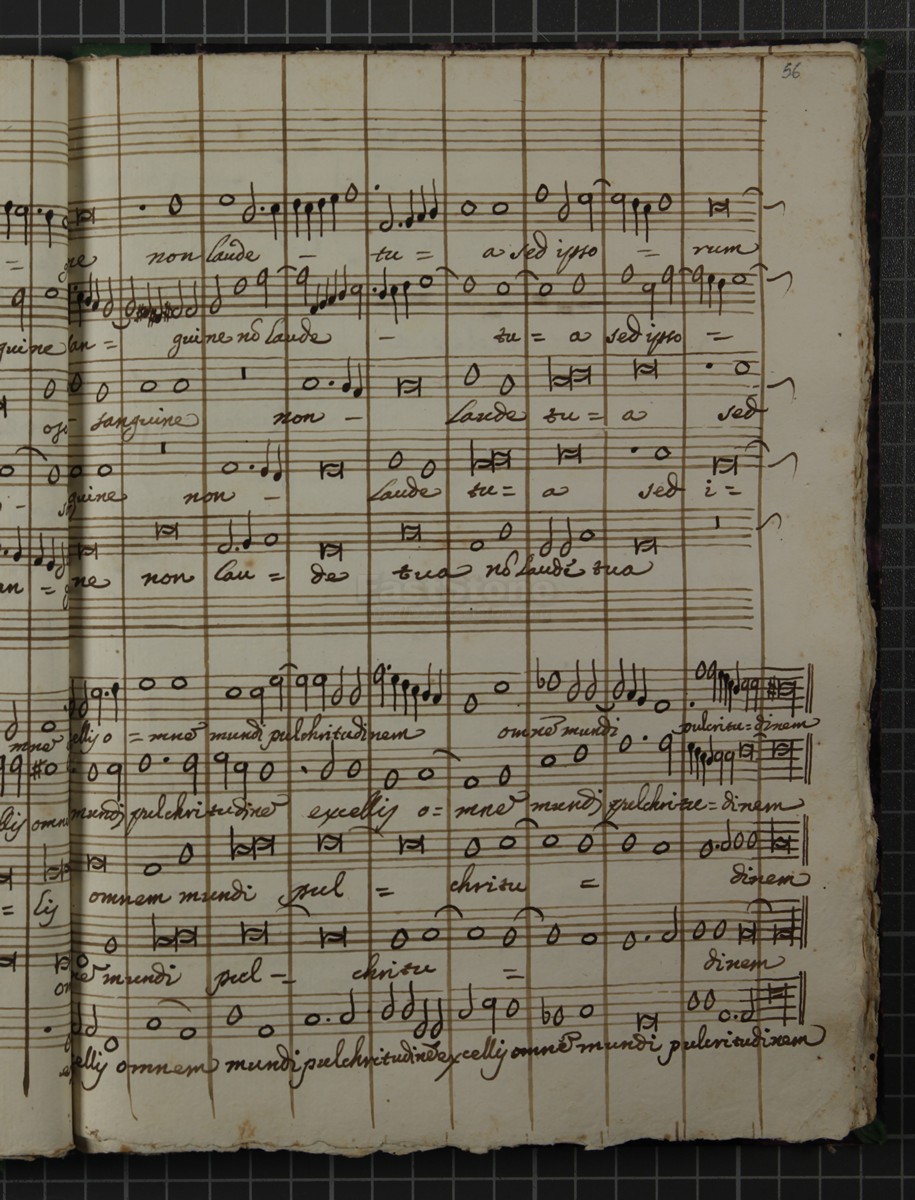 56
= gne non laude - tu = a sed ipso = rum
guine san = guine nõ laude - tu = a sed ipso =
sanguine non - laude tu = a sed
- guine non - laude tu = a sed i =
an = gne non lau = de tua nõ laude tua
mnẽ ellis o = mnẽ mundi pulchritudinem omnẽ mundi pulcritu = dinem
llis omnẽ mundi pulchritudinẽ excellis o = mnẽ mundi pulchritu = dinem
= lis omnem mundi pul = chritu = dinem
mundi pul - chritu = dinem
ellis omnem mundi pulchritudinẽ excellis omnẽ mundi pulcritudinem